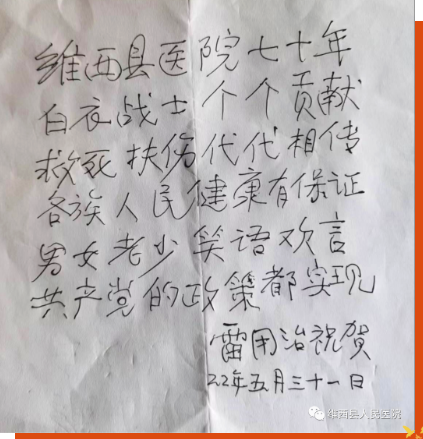 维西县医院七十年
白衣战士个个贡献
救死扶伤代代相传
各族人民健康有保证
男女老少笑语欢言
共产党的政策都实现
雷用治祝贺
22年五月三十一日
维西县人民医院